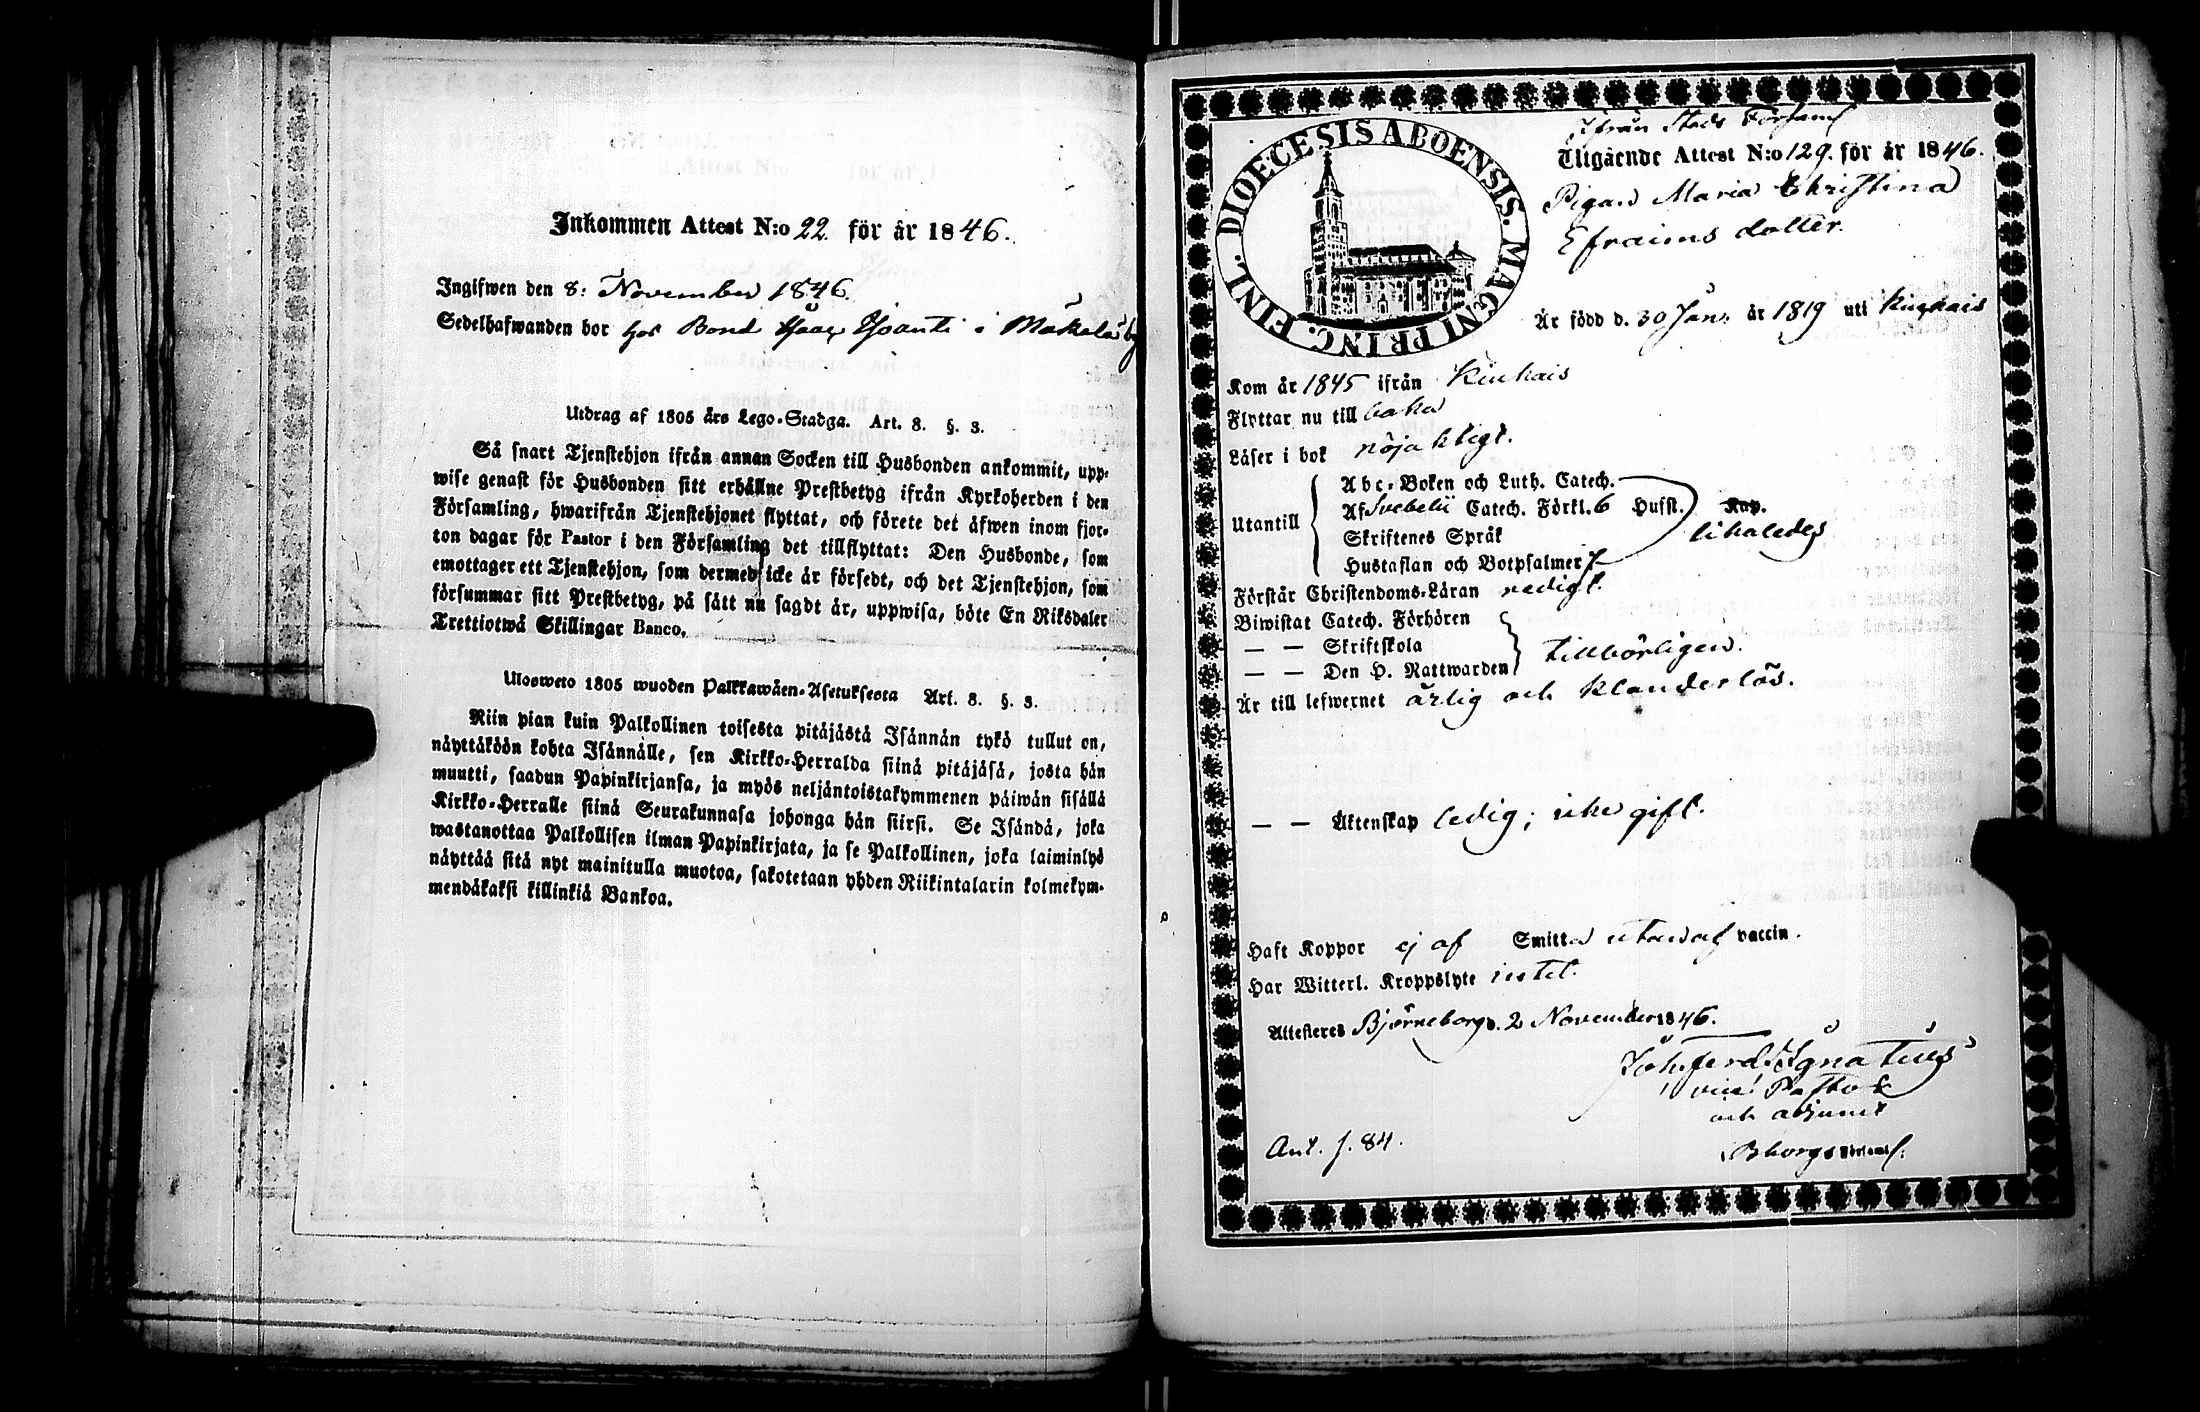 Inkommen Attest N:o 22. för år 1846.
Ingifwen den 8: November 1846.
Sedelhafwanden bor hos Bond i Mäkelä by
Utdrag af 1805 års Lego-Stadga. Art. 8. §. 3.
Så snart Tjenstehjon ifrån annan Socken till Husbonden ankommit, upp-
wise genast för Husbonden sitt erhållne Prestbetyg ifrån Kyrkoherden i den
Församling, hwarifrån Tjenstehjonet flyttat, och förete det äfwen inom fjor-
ton dagar för Pastor i den Församling det tillflyttat: Den Husbonde, som
emottager ett Tjenstehjon, som dermed icke är försedt, och det Tjenstehjon, som
försummar sitt Prestbetyg, på sätt nu sagdt är, uppwisa, böte En Riksdaler
Trettiotwå Skillingar Banco.
Ulosweto 1805 wuoden Palkkawäen-Asetuksesta Art. 8. §. 3.
Niin pian kuin Palkollinen toisesta pitäjästä Isännän tykö tullut on,
näyttäköön kohta Isännälle, sen Kirkko-Herralda siinä pitäjäsä, josta hän
muutti, saadun Papinkirjansa, ja myös neljäntoistakymmenen päiwän sisällä
Kirkko-Herralle siinä Seurakunnasa johonga hän siirsi. Se Isändä, joka
wastanottaa Palkollisen ilman Papinkirjata, ja se Palkollinen, joka laiminlyö
näyttää sitä nyt mainitulla muotoa, sakotetaan yhden Riikintalarin kolmekym-
mendäkaksi killinkiä Bankoa.
DIOECESIS ABOENSIS. MAGNI PRINC. FINL.
Ifrån Stads Församl
Utgående Attest N:o 129. för år 1846.
Pigan Maria Christina
Efraims dotter.
Är född d. 30 Jan. år 1819 uti Kiukais
Kom år 1845 ifrån Kiukais
Flyttar nu till baka
Läser i bok nöjaktigt.
Utantill
Abc-Boken och Luth. Catech.
Af Svebelii Catech. Förkl. 6 Hufst. Kap.
Skriftenes Språk
likaledes
Hustaflan och Botpsalmer 7
Förstår Christendoms-Läran redigt.
Biwistat Catech. Förhören
— — Skriftskola
tillbörligen.
— — Den H. Nattwarden
Är till lefwernet ärlig och klanderlös.
— — Äktenskap ledig; icke gift.
Haft Koppor ej af Smitta utan af vaccin.
Har Witterl. Kroppslyte intet.
Attesteres Björneborg d. 2 November 1846.
Joh. Ferd. Ignatius
vice Pastor
och adjunct
Bborgs Församl.
Ant. f. 84.